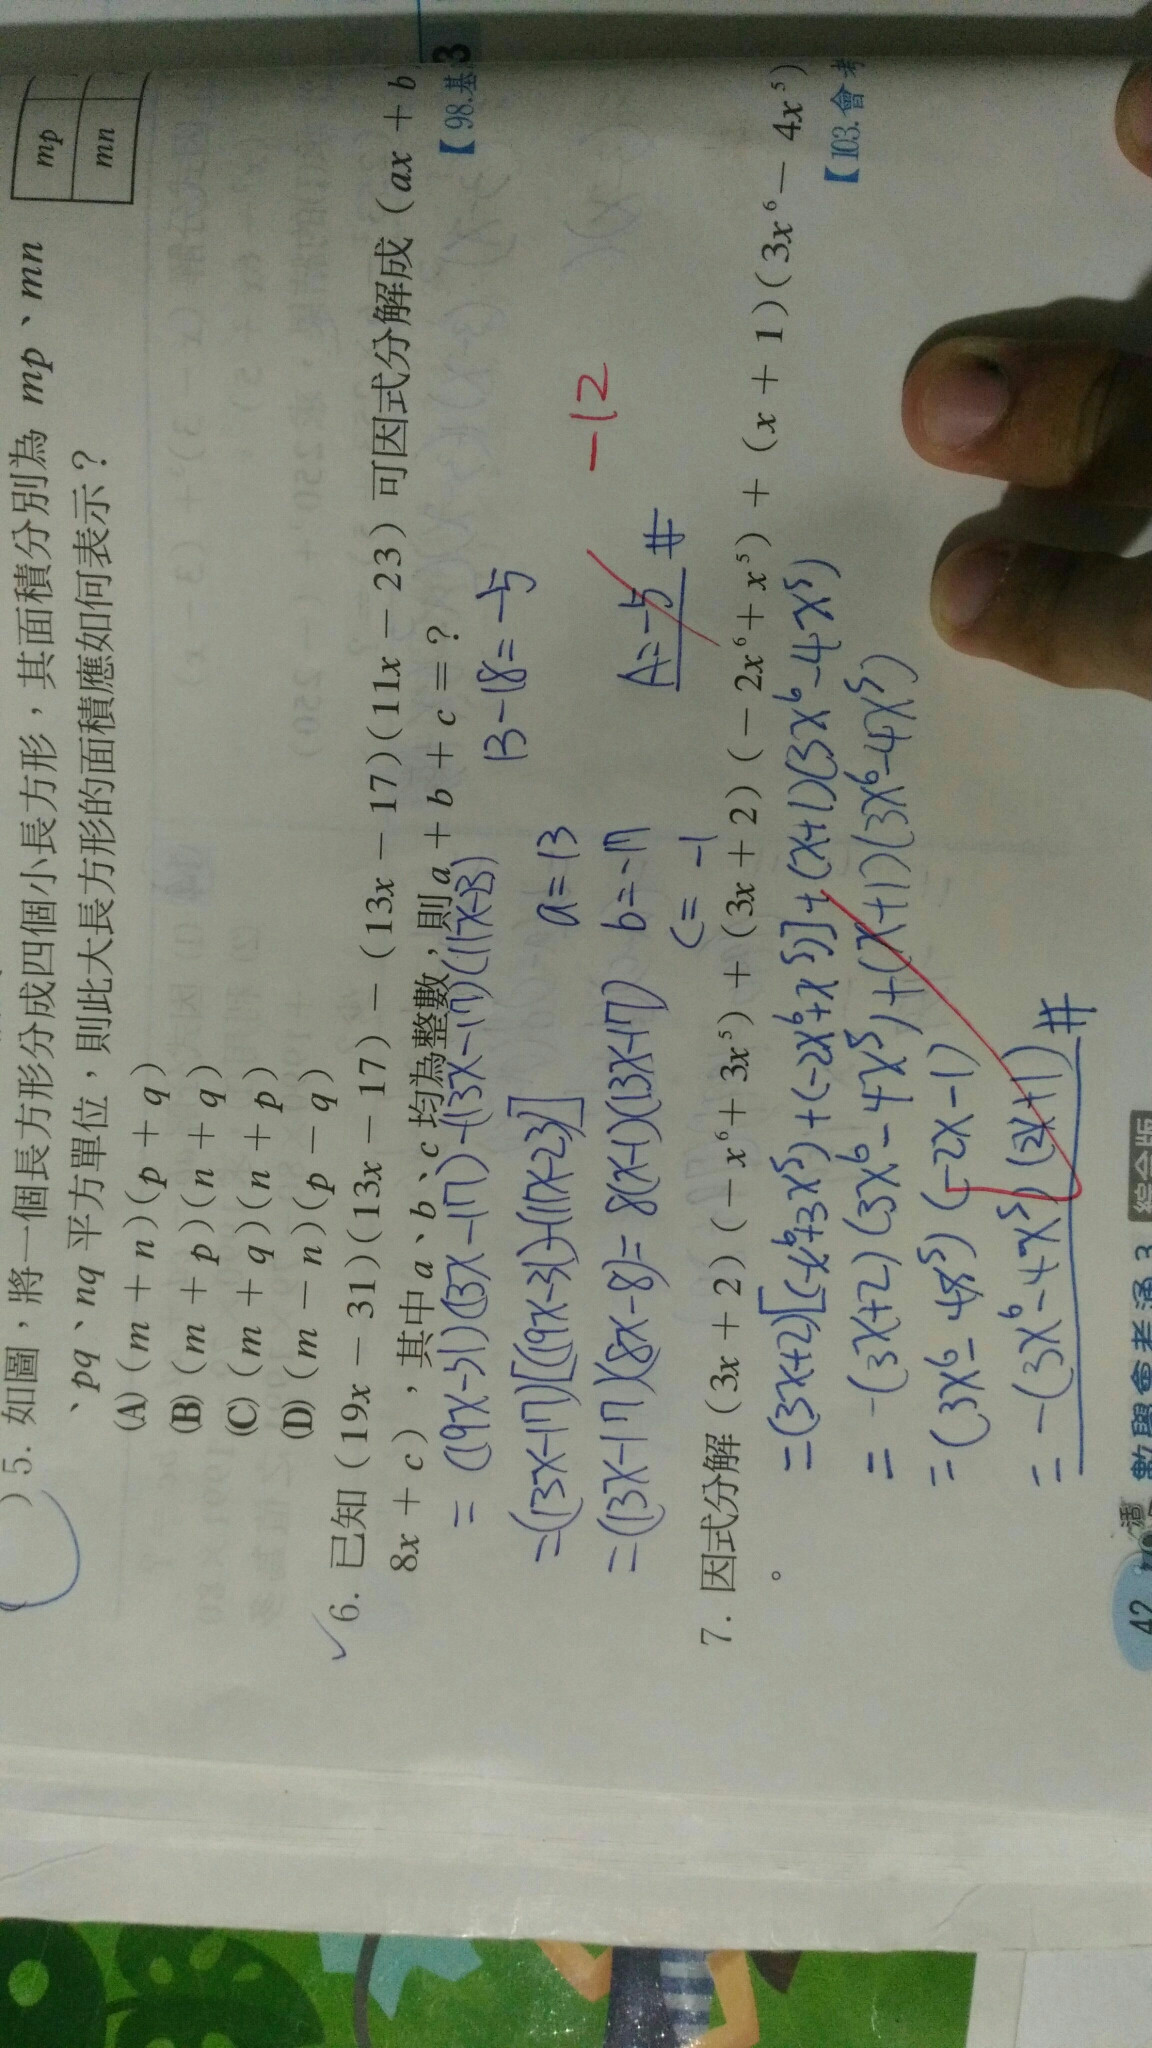 mp
mn
)5. 如圖，將一個長方形分成四個小長方形，其面積分別為 mp、mn
、pq、nq 平方單位，則此大長方形的面積應如何表示？
(A) (m + n)(p + q)
(B) (m + p)(n + q)
(C) (m + q)(n + p)
(D) (m − n)(p − q)
✓6. 已知 (19x − 31)(13x − 17) − (13x − 17)(11x − 23) 可因式分解成 (ax + b
8x + c)，其中 a、b、c 均為整數，則 a + b + c = ?
【98.基
3
= (19x-31)(13x-17)-(13x-17)(11x-23)
13-18=-5
=(13x-17)[(19x-31)-(11x-23)]
a=13
=(13x-17)(8x-8)= 8(x-1)(13x-17)
b=-17
c= -1
A=-5 #
-12
7. 因式分解 (3x + 2)(−x⁶ + 3x⁵) + (3x + 2)(−2x⁶ + x⁵) + (x + 1)(3x⁶ − 4x⁵)
。
【103.會考
=(3x+2)[(-x⁶+3x⁵)+(-2x⁶+x⁵)]+(x+1)(3x⁶-4x⁵)
= -(3x+2)(3x⁶-4x⁵)+(x+1)(3x⁶-4x⁵)
=(3x⁶-4x⁵)(-2x-1)
= -(3x⁶-4x⁵)(2x+1) #
42
數學會考通 3
綜合版